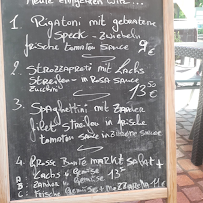 Heute empfehlen wir ...
1. Rigatoni mit gebratene
Speck - Zwiebeln
frische tomaten sauce 9€
2. Strozzapreti mit Lachs
Streifen - in Rosa sauce
Zucchini 13,50
3. Spaghettini mit Zander
filet streifen in frische
tomaten sauce
4. Grosse Bunte markt salat +
A: Lachs + Gemüse 13,5
B: Zander + Gemüse
C: Frische Gemüse + Mozzarella 11€